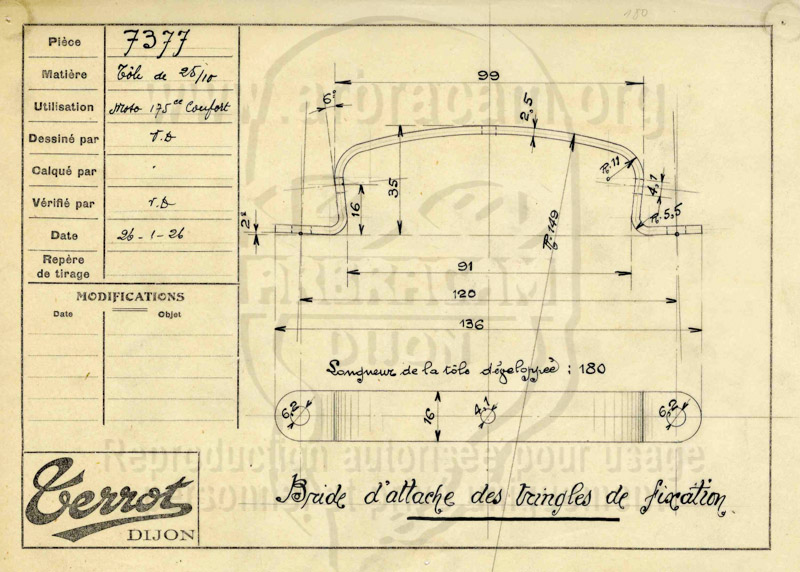 Pièce 7377
Matière Tôle de 25/10
Utilisation Moto 175cc Confort
Dessiné par V.D
Calqué par
Vérifié par V.D
Date 26-1-26
Repère
de tirage
MODIFICATIONS
Date Objet
Terrot
DIJON
99
2,5
R.11
4,1
35
16
R.149
R.5,5
91
120
136
Longueur de la tôle dégeloppeé : 180
6,2
16
4,1
6,2
Bride d'attache des tringles de fixation
www.arbracam.org
ARBRACAM
DIJON
Reproduction autorisée pour usage